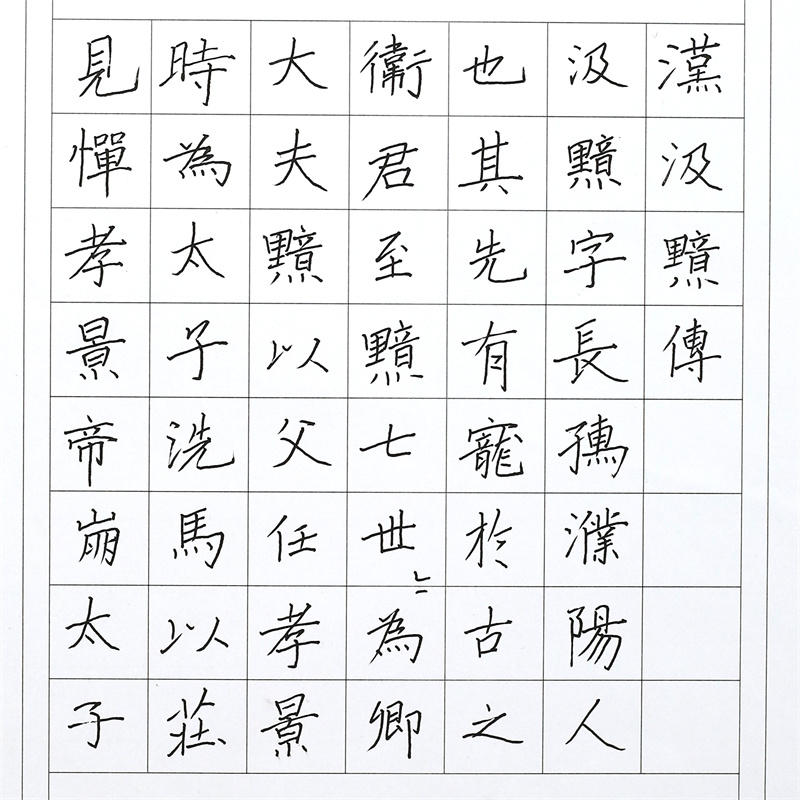 漢汲黯傳
汲黯字長孺濮陽人
也其先有寵於古之
衛君至黯七世〻為卿
大夫黯以父任孝景
時為太子洗馬以莊
見憚孝景帝崩太子